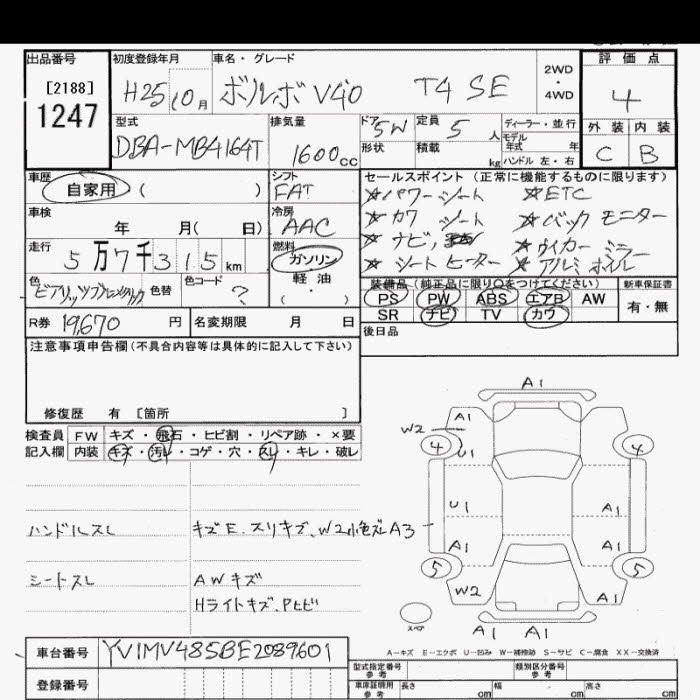 出品番号 初度登録年月 車名・グレード 2WD・4WD 評価点
[2188]
1247 H25 10月 ボルボ V40 T4 SE 4
型式 排気量 ドア 5W 定員 5人 ディーラー・並行 外装 内装
DBA-MB4164T 1600cc 形状 積載 kg モデル年式 年 C B
ハンドル 左・右
車歴 シフト セールスポイント(正常に機能するものに限ります)
自家用 ( ) FAT ☆パワーシート ☆ETC
車検 冷房 ☆カワシート ☆バックモニター
年 月( 日) AAC ☆ナビ,
走行 5万7千315km 燃料 ガソリン ☆シートヒーター ☆アルミホイル
軽油
( ・ )
色 色替 色コード ? 装備品(純正品に限り○をつけてください) 新車保証書
PS PW ABS エアB AW 有・無
SR ナビ TV カワ
R券 19,670円 名変期限 月 日 後日品
注意事項申告欄(不具合内容等は具体的に記入して下さい)
修復歴 有 [箇所 ]
検査員 FW キズ・飛石・ヒビ割・リペア跡・×要
記入欄 内装 キズ・汚レ・コゲ・穴・スレ・キレ・破レ
ハンドルスレ キズE.スリキズ、W2小色ズレA3
シートスレ AWキズ
Hライトキズ.Pヒビ
A1
W2 A1
4 U1 4
U1 A1
A1 A1
5 5
W2 A1
スペア A1 A1
A-キズ E-エクボ U-凹み W-補修跡 S-サビ C-腐食 XX-交換済
車台番号 YV1MV485BE2089601
登録番号
型式指定番号 参考 類別区分番号 参考
車庫証明用 参考 長さ cm 幅 cm 高さ cm